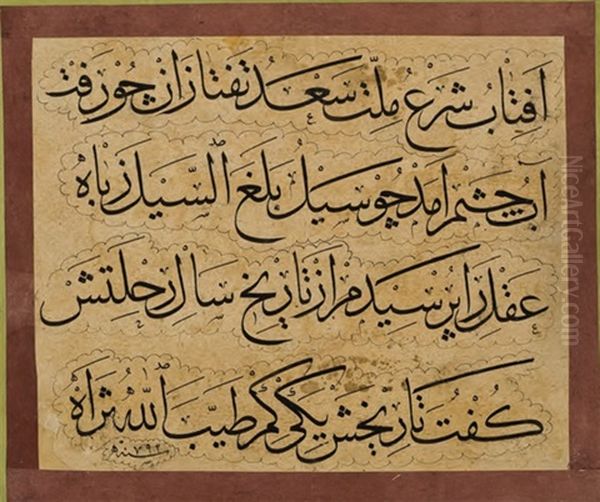 افتاب شرع ملت سعد تفتازان چو رفت
اب چشم امد چو سیل بلغ السیل زباه
عقل را پرسیدم از تاریخ سال رحلتش
گفت تاریخش یکی کم طیب الله ثراه
سنه ٧٩٢
NiceArtGallery.com